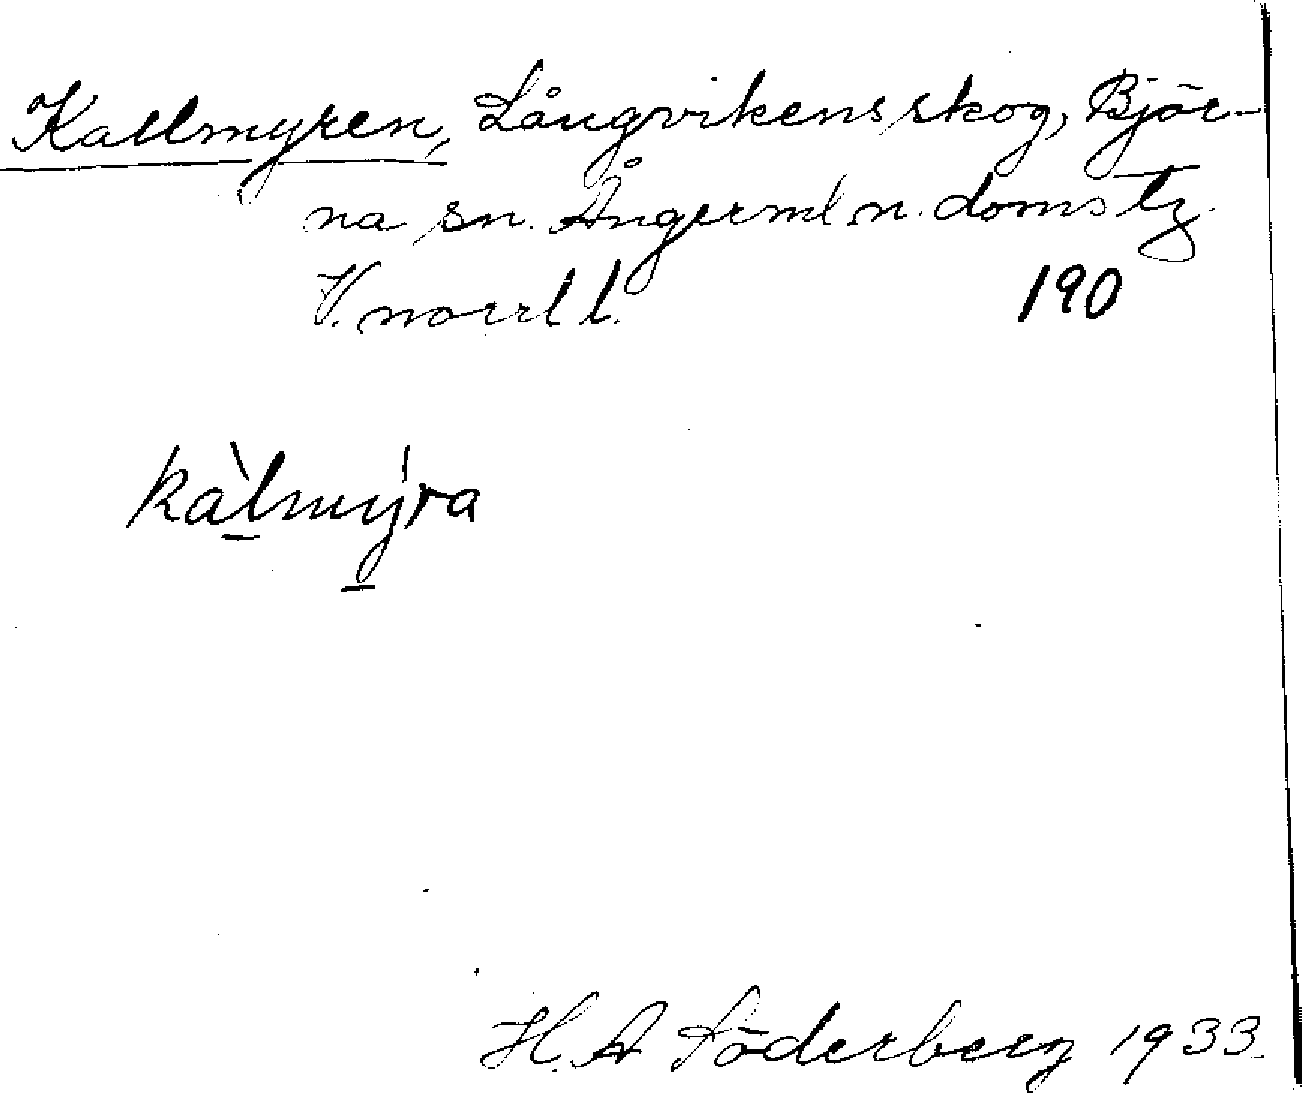 Kallmyren, Långvikensskog, Björ-
na sn. Ångerml n. doms tg.
V. norrl l. 190
kàlmýra
H. A Söderberg 1933.